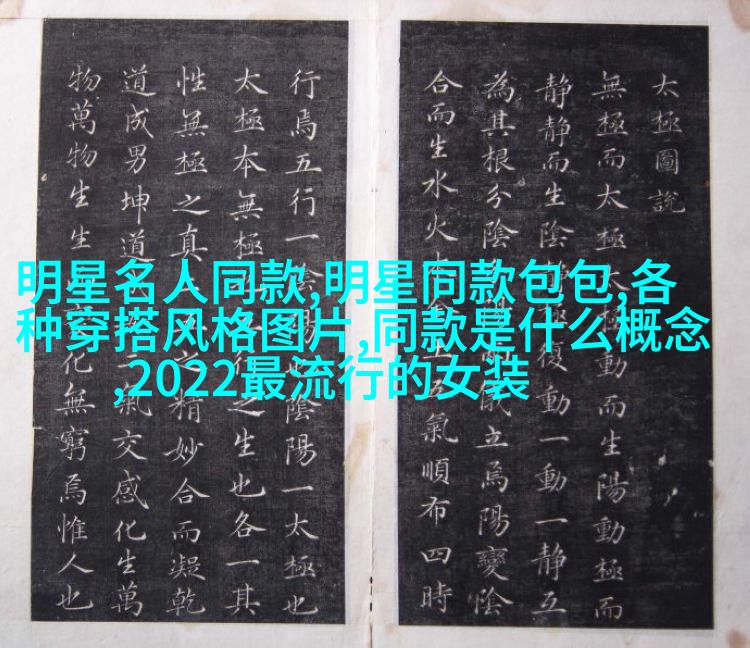 明星名人同款,明星同款包包,各
种穿搭风格图片,同款是什么概念
,2022最流行的女装
太極圖說
無極而太極極動而生陽動極而
静静而生陰静極復動一動一静互
為其根分陰陽儀立焉陽變陰
合而生水火木五氣順布四時
行焉五行一陰陽也陰陽一太極也
太極本無極行之生也各一其
性無極之真之精妙合而凝乾
道成男坤道二氣交感化生萬
物萬物生生化無窮焉惟人也